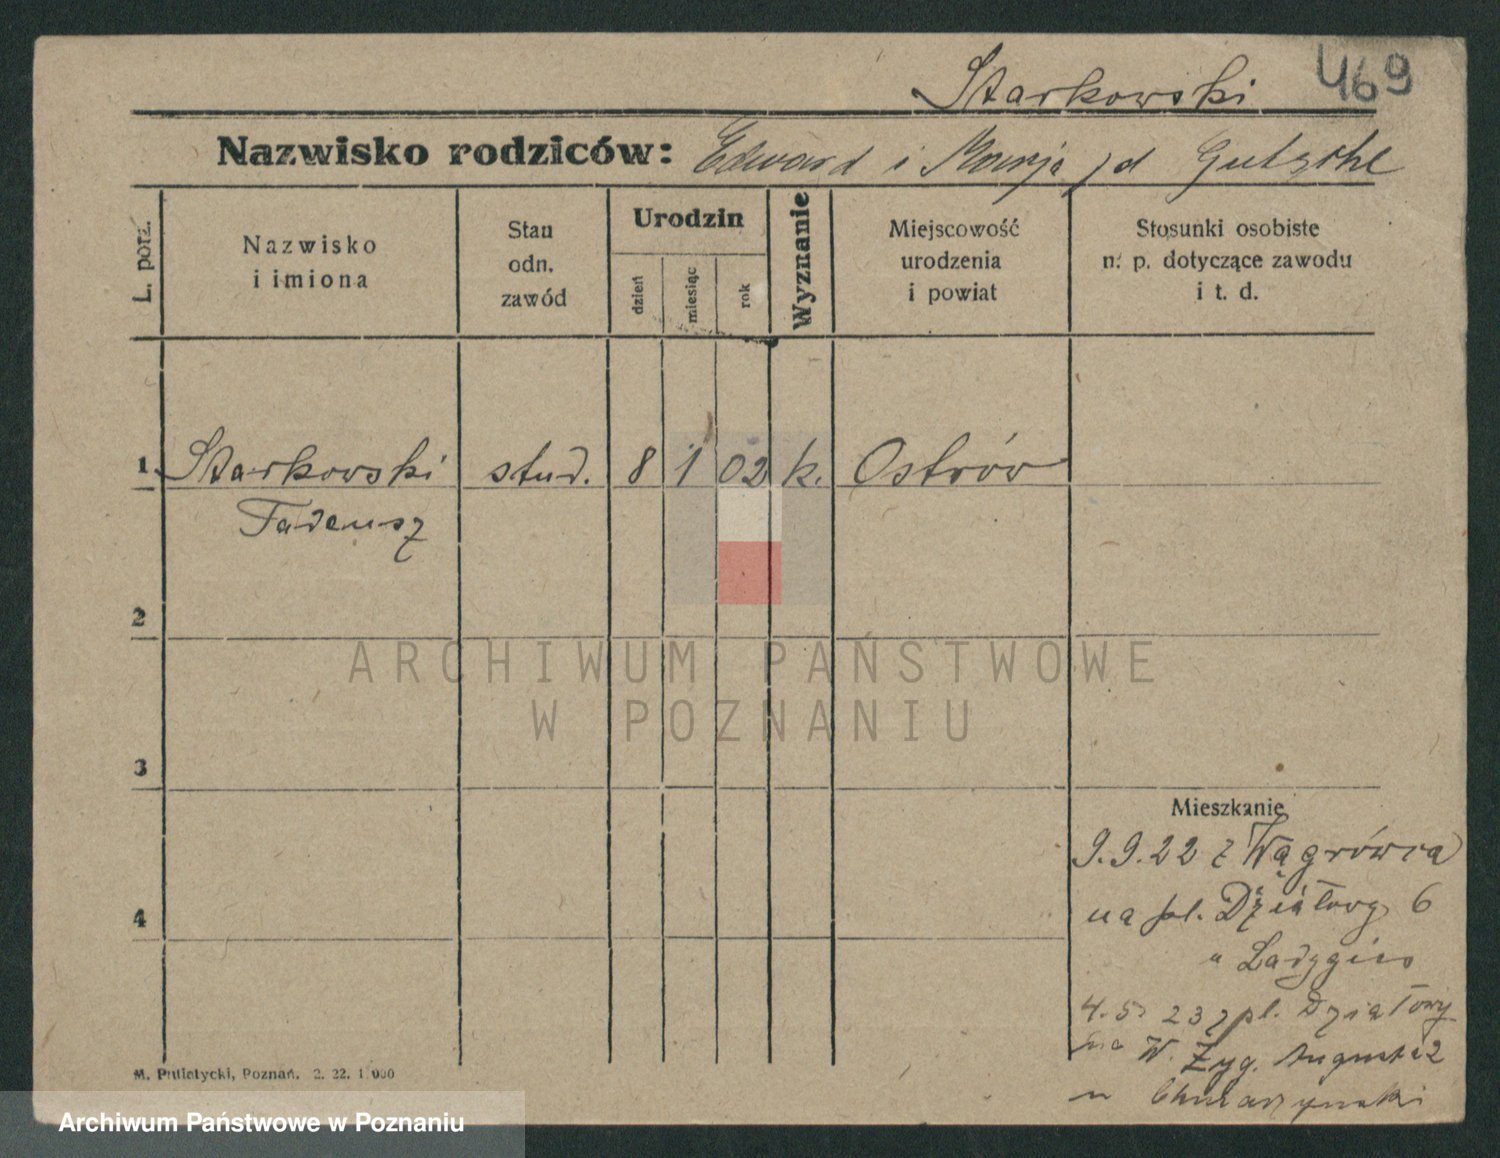 Starkowski 469
Nazwisko rodziców: Edward i Marja /d
L. porz.
Nazwisko
i imiona
Stan
odn.
zawód
Urodzin
dzień
miesiąc
rok
Wyznanie
Miejscowość
urodzenia
i powiat
Stosunki osobiste
n. p. dotyczące zawodu
i t. d.
1 Starkowski stud. 8 1 02 k. Ostrów
Tadeusz
2
3
4
ARCHIWUM PAŃSTWOWE
W POZNANIU
Mieszkanie
9.9.22 z Wągrówca
na pl. Działowy 6
u
4.5. 23 z pl. Działowy
na W. Zyg. Augusta 2
u
M. Putiatycki, Poznań. 2. 22. 1.000
Archiwum Państwowe w Poznaniu